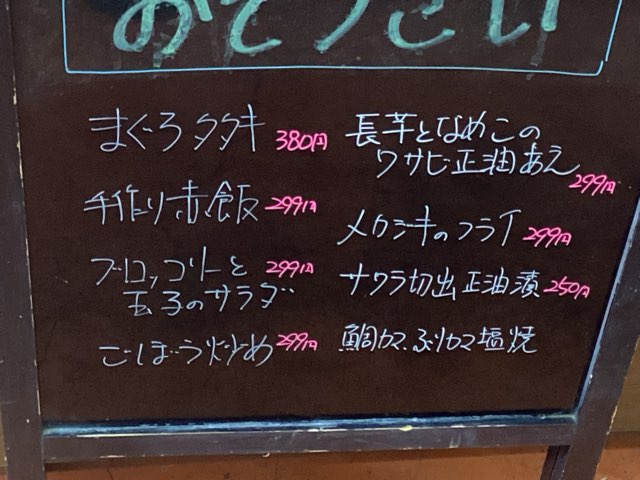 おそうざい
まぐろタタキ 380円
手作り赤飯 299円
ブロッコリーと 299円
玉子のサラダ
ごぼう炒め 299円
長芋となめこの
ワサビ正油あえ 299円
メカジキのフライ 299円
サワラ切出正油漬 250円
鯛カマ、ぶりカマ塩焼